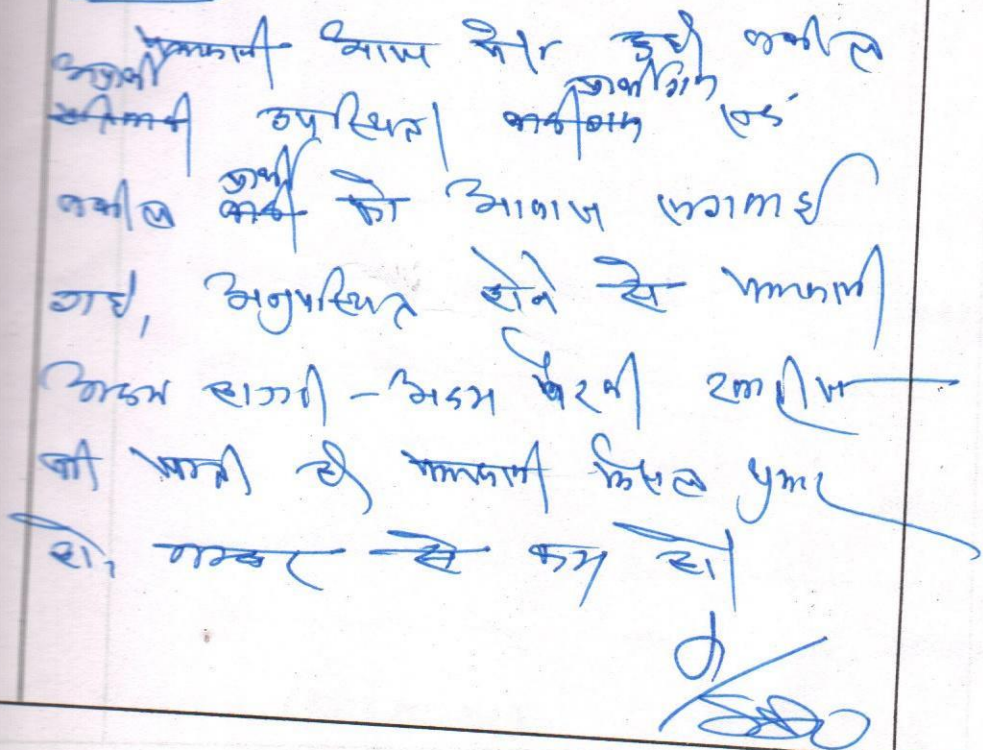 पत्रावली आज पेश हुई वकील
अप्रार्थी उपस्थित। प्रार्थीगण एवं
वकील प्रार्थी को आवाज लगवाई
गई, अनुपस्थित होने से पत्रावली
अदम हाजरी - अदम पैरवी खारीज
की जाती है पत्रावली फैसल शुमार
हो, नम्बर से कम हो।